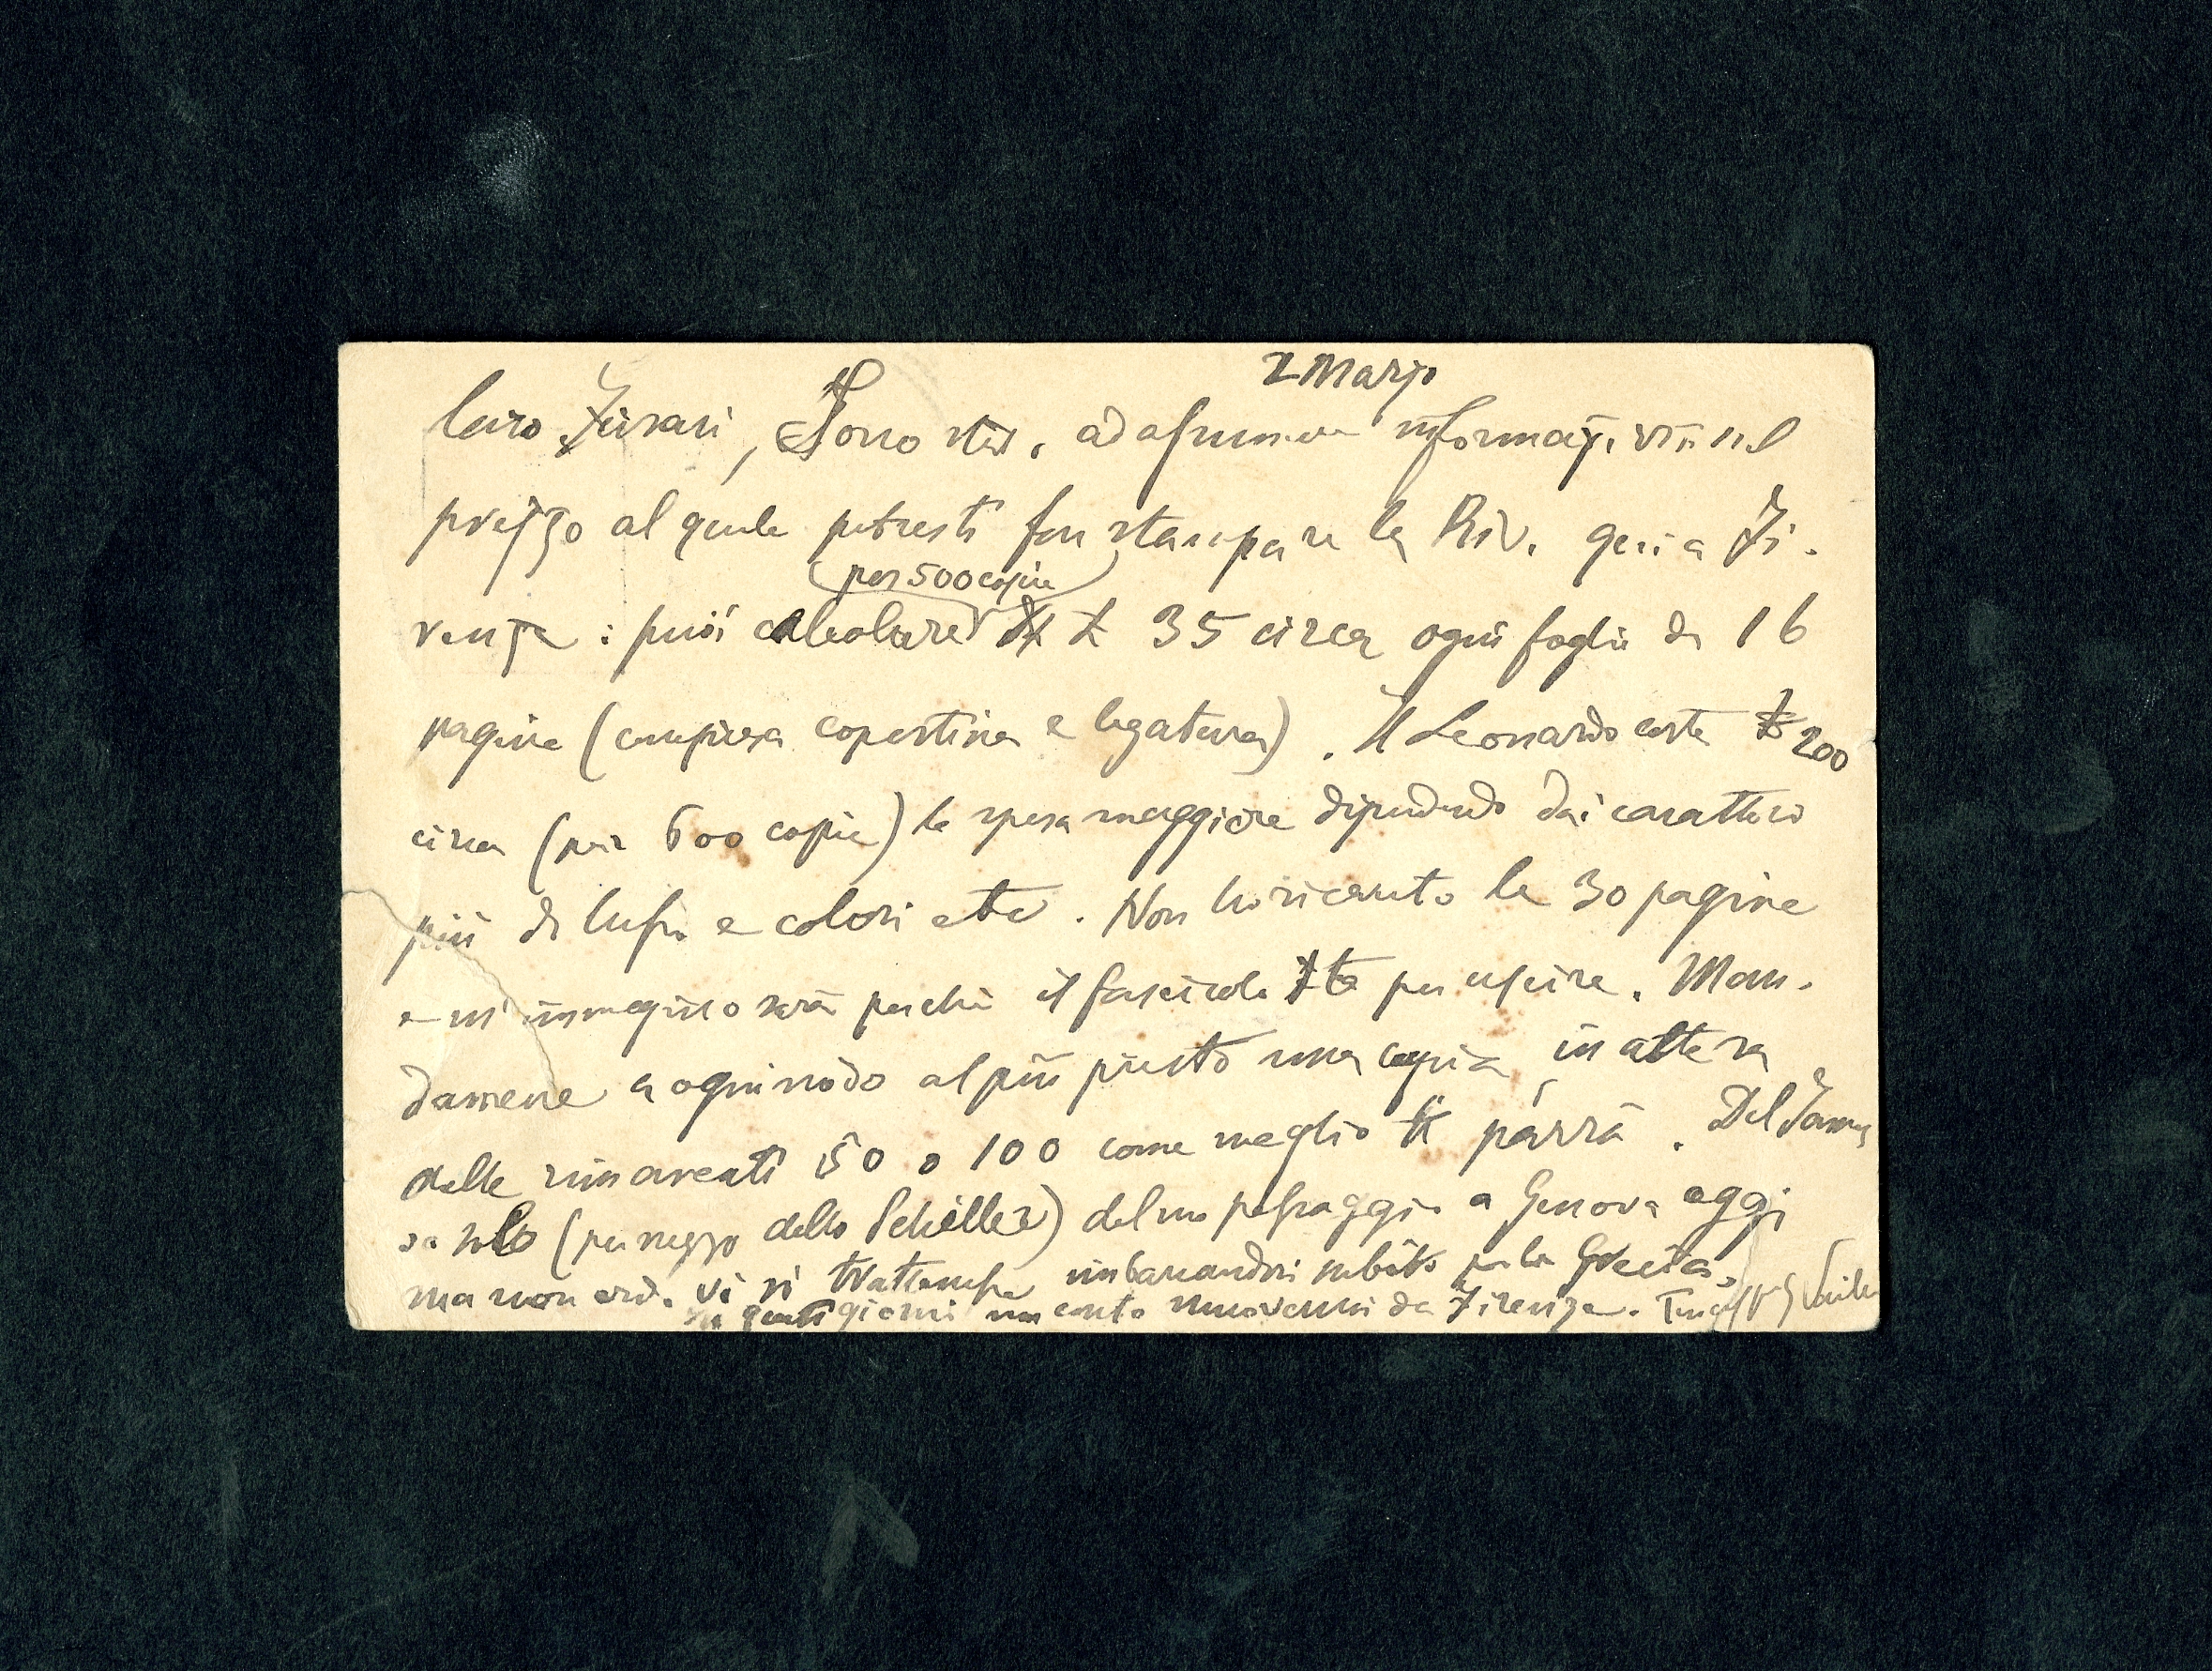 2 Marzo
Caro Fusari, Sono stato ad assumere informaz. sul
prezzo al quale potresti far stampare la Riv. qui a Fi-
renze: puoi calcolare (per 500 copie) £ 35 circa ogni foglio di 16
pagine (compresa copertina e legatura). Il Leonardo costa £ 200
circa (per 600 copie) la spesa maggiore dipendendo dai caratteri
più di lusso e colori etc. Non ho ricevuto le 30 pagine
e m'immagino sarà perchè il fascicolo sta per uscire. Man-
damene a ogni modo al più presto una copia, in attesa
delle rimanenti 50 o 100 come meglio ti parrà. Del James
so solo (per mezzo dello Schiller) del suo passaggio a Genova oggi
ma non credo vi si trattenesse imbarcandosi subito per la Grecia.
questi giorni non conto muovermi da Firenze. Tuo